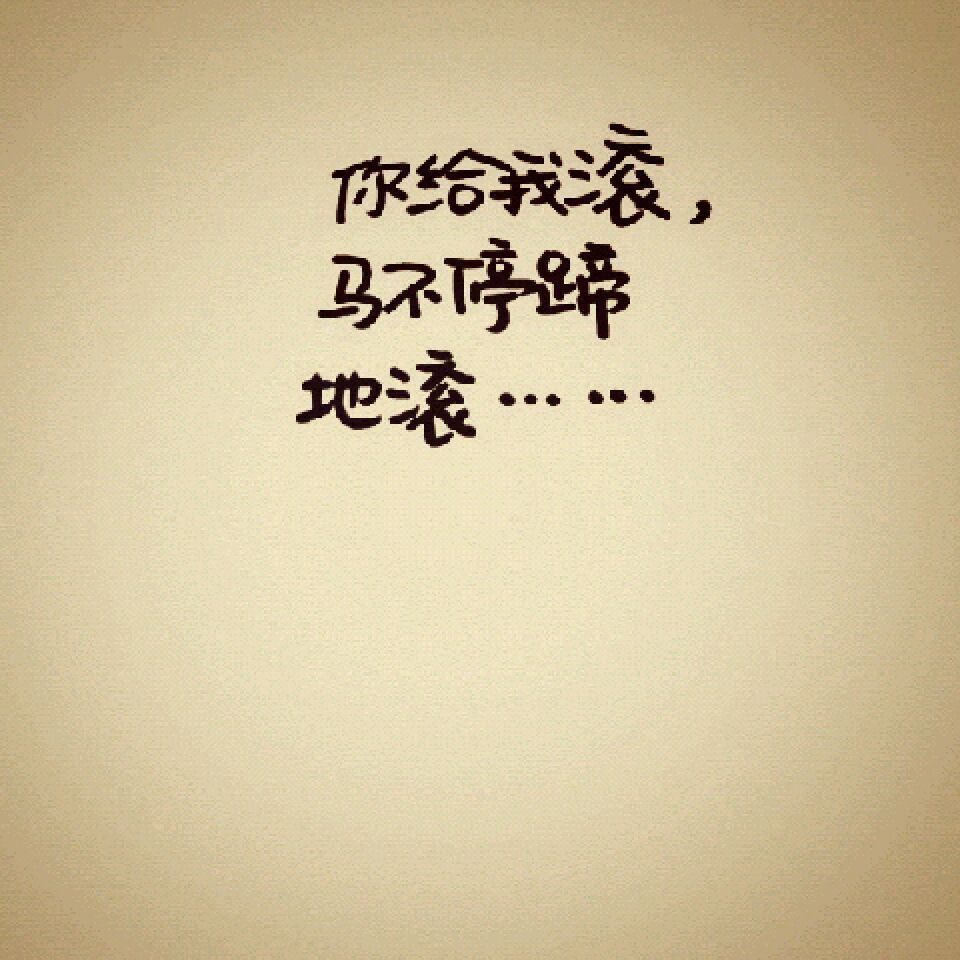 你给我滚，
马不停蹄
地滚……